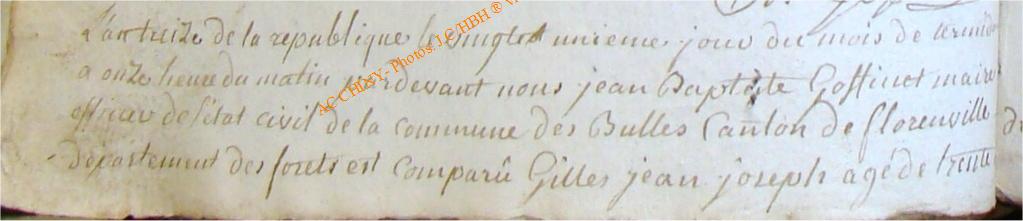 L'an treize de la republique le vingt et unieme jour du mois de
a onze heure du matin pardevant nous jean Baptiste Goffinet maire
officier de l'état civil de la commune des Bulles Canton de florenville
département des forets est comparû Gilles jean joseph agé de trente
AC CHINY- Photos J.C/HBH ®